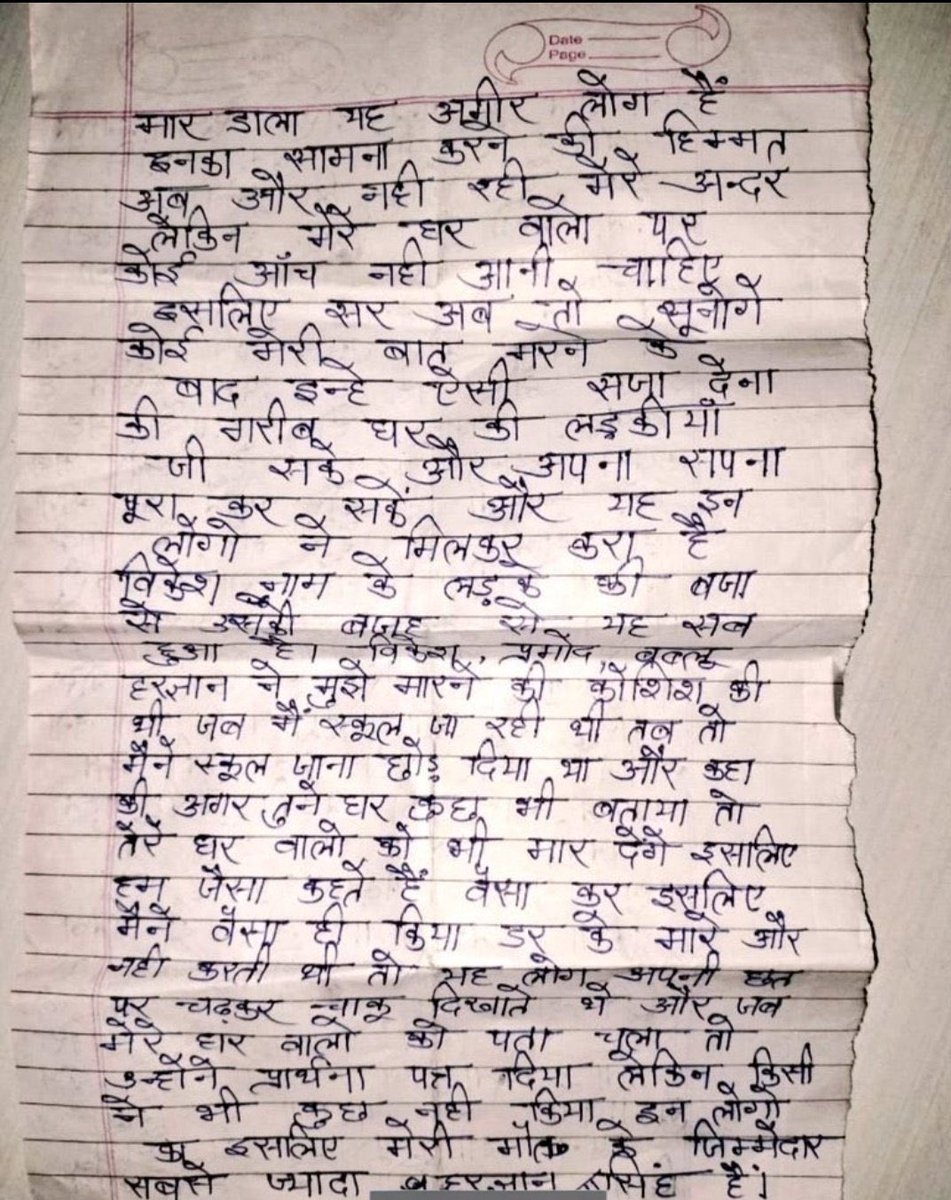 Date
Page
मार डाला यह अमीर लोग हैं
इनका सामना करने की हिम्मत
अब और नही रही मेरे अन्दर
लेकिन मेरे घर वालो पर
कोई आँच नही आनी चाहिए
इसलिए सर अब तो सूनोगे
कोई मेरी बात मरने के
बाद इन्हे ऐसी सजा देना
की गरीब घर की लड़कीयाँ
जी सके और अपना सपना
पूरा कर सकें और यह इन
लोगो ने मिलकर करा है
विकेश नाम के लड़के की बजा
से उसकी बजह से यह सब
हुआ है। विकेश, प्रमोद, बबलू
हरज्ञान ने मुझे मारने की कोशिश की
थी जब मैं स्कूल जा रही थी तब तो
मैने स्कूल जाना छोड़ दिया था और कहा
की अगर तुने घर कुछ भी बताया तो
तेरे घर वालो को भी मार देंगे इसलिए
हम जैसा कहते हैं वैसा कर इसलिए
मैने वैसा ही किया डर के मारे और
नही करती थी तो यह लोग अपनी छत
पर चढ़कर चाकू दिखाते थे और जब
मेरे घर वालो को पता चला तो
उन्होने प्रार्थना पत्र दिया लेकिन किसी
ने भी कुछ नही किया इन लोगो
का इसलिए मेरी मौत के जिम्मेदार
सबसे ज्यादा हरज्ञान सिंह है।